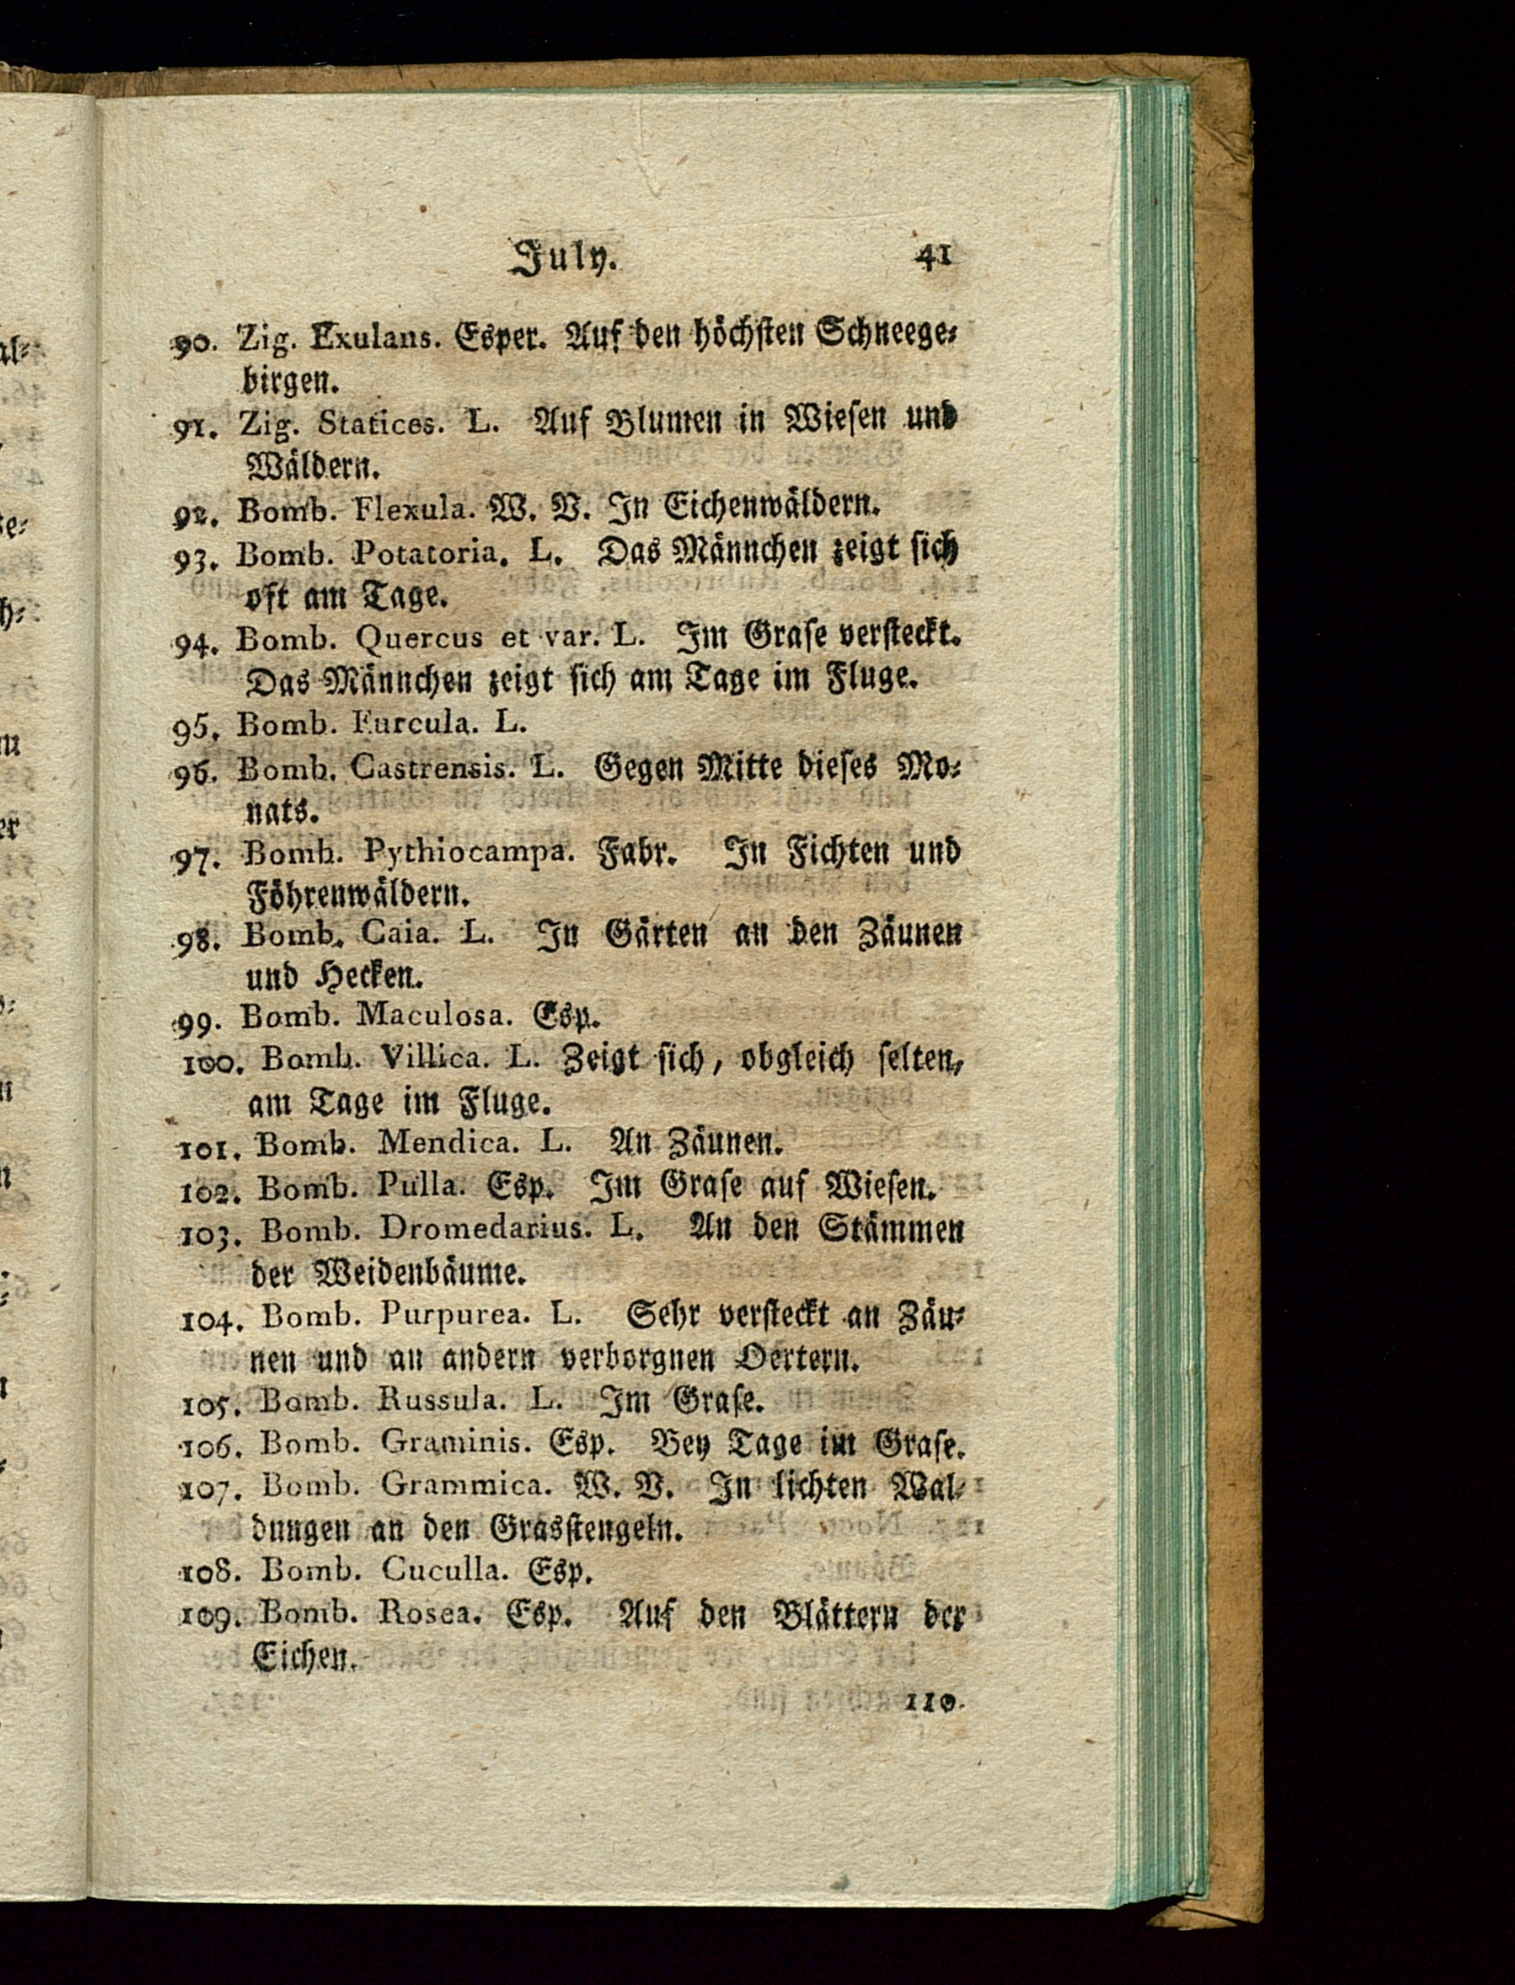 July. 41
90. Zig. Exulans. Esper. Auf den höchsten Schneege-
birgen.
91. Zig. Statices. L. Auf Blumen in Wiesen und
Wäldern.
92. Bomb. Flexula. W. V. In Eichenwäldern.
93. Bomb. Potatoria. L. Das Männchen zeigt sich
oft am Tage.
94. Bomb. Quercus et var. L. Im Grase versteckt.
Das Männchen zeigt sich am Tage im Fluge.
95. Bomb. Furcula. L.
96. Bomb. Castrensis. L. Gegen Mitte dieses Mo-
nats.
97. Bomb. Pythiocampa. Fabr. In Fichten und
Föhrenwäldern.
98. Bomb. Caia. L. In Gärten an den Zäunen
und Hecken.
99. Bomb. Maculosa. Esp.
100. Bomb. Villica. L. Zeigt sich, obgleich selten,
am Tage im Fluge.
101. Bomb. Mendica. L. An Zäunen.
102. Bomb. Pulla. Esp. Im Grase auf Wiesen.
103. Bomb. Dromedarius. L. An den Stämmen
der Weidenbäume.
104. Bomb. Purpurea. L. Sehr versteckt an Zäu-
nen und an andern verborgnen Oertern.
105. Bomb. Russula. L. Im Grase.
106. Bomb. Graminis. Esp. Bey Tage im Grase.
107. Bomb. Grammica. W. V. In lichten Wal-
dungen an den Grasstengeln.
108. Bomb. Cuculla. Esp.
109. Bomb. Rosea. Esp. Auf den Blättern der
Eichen.
110.